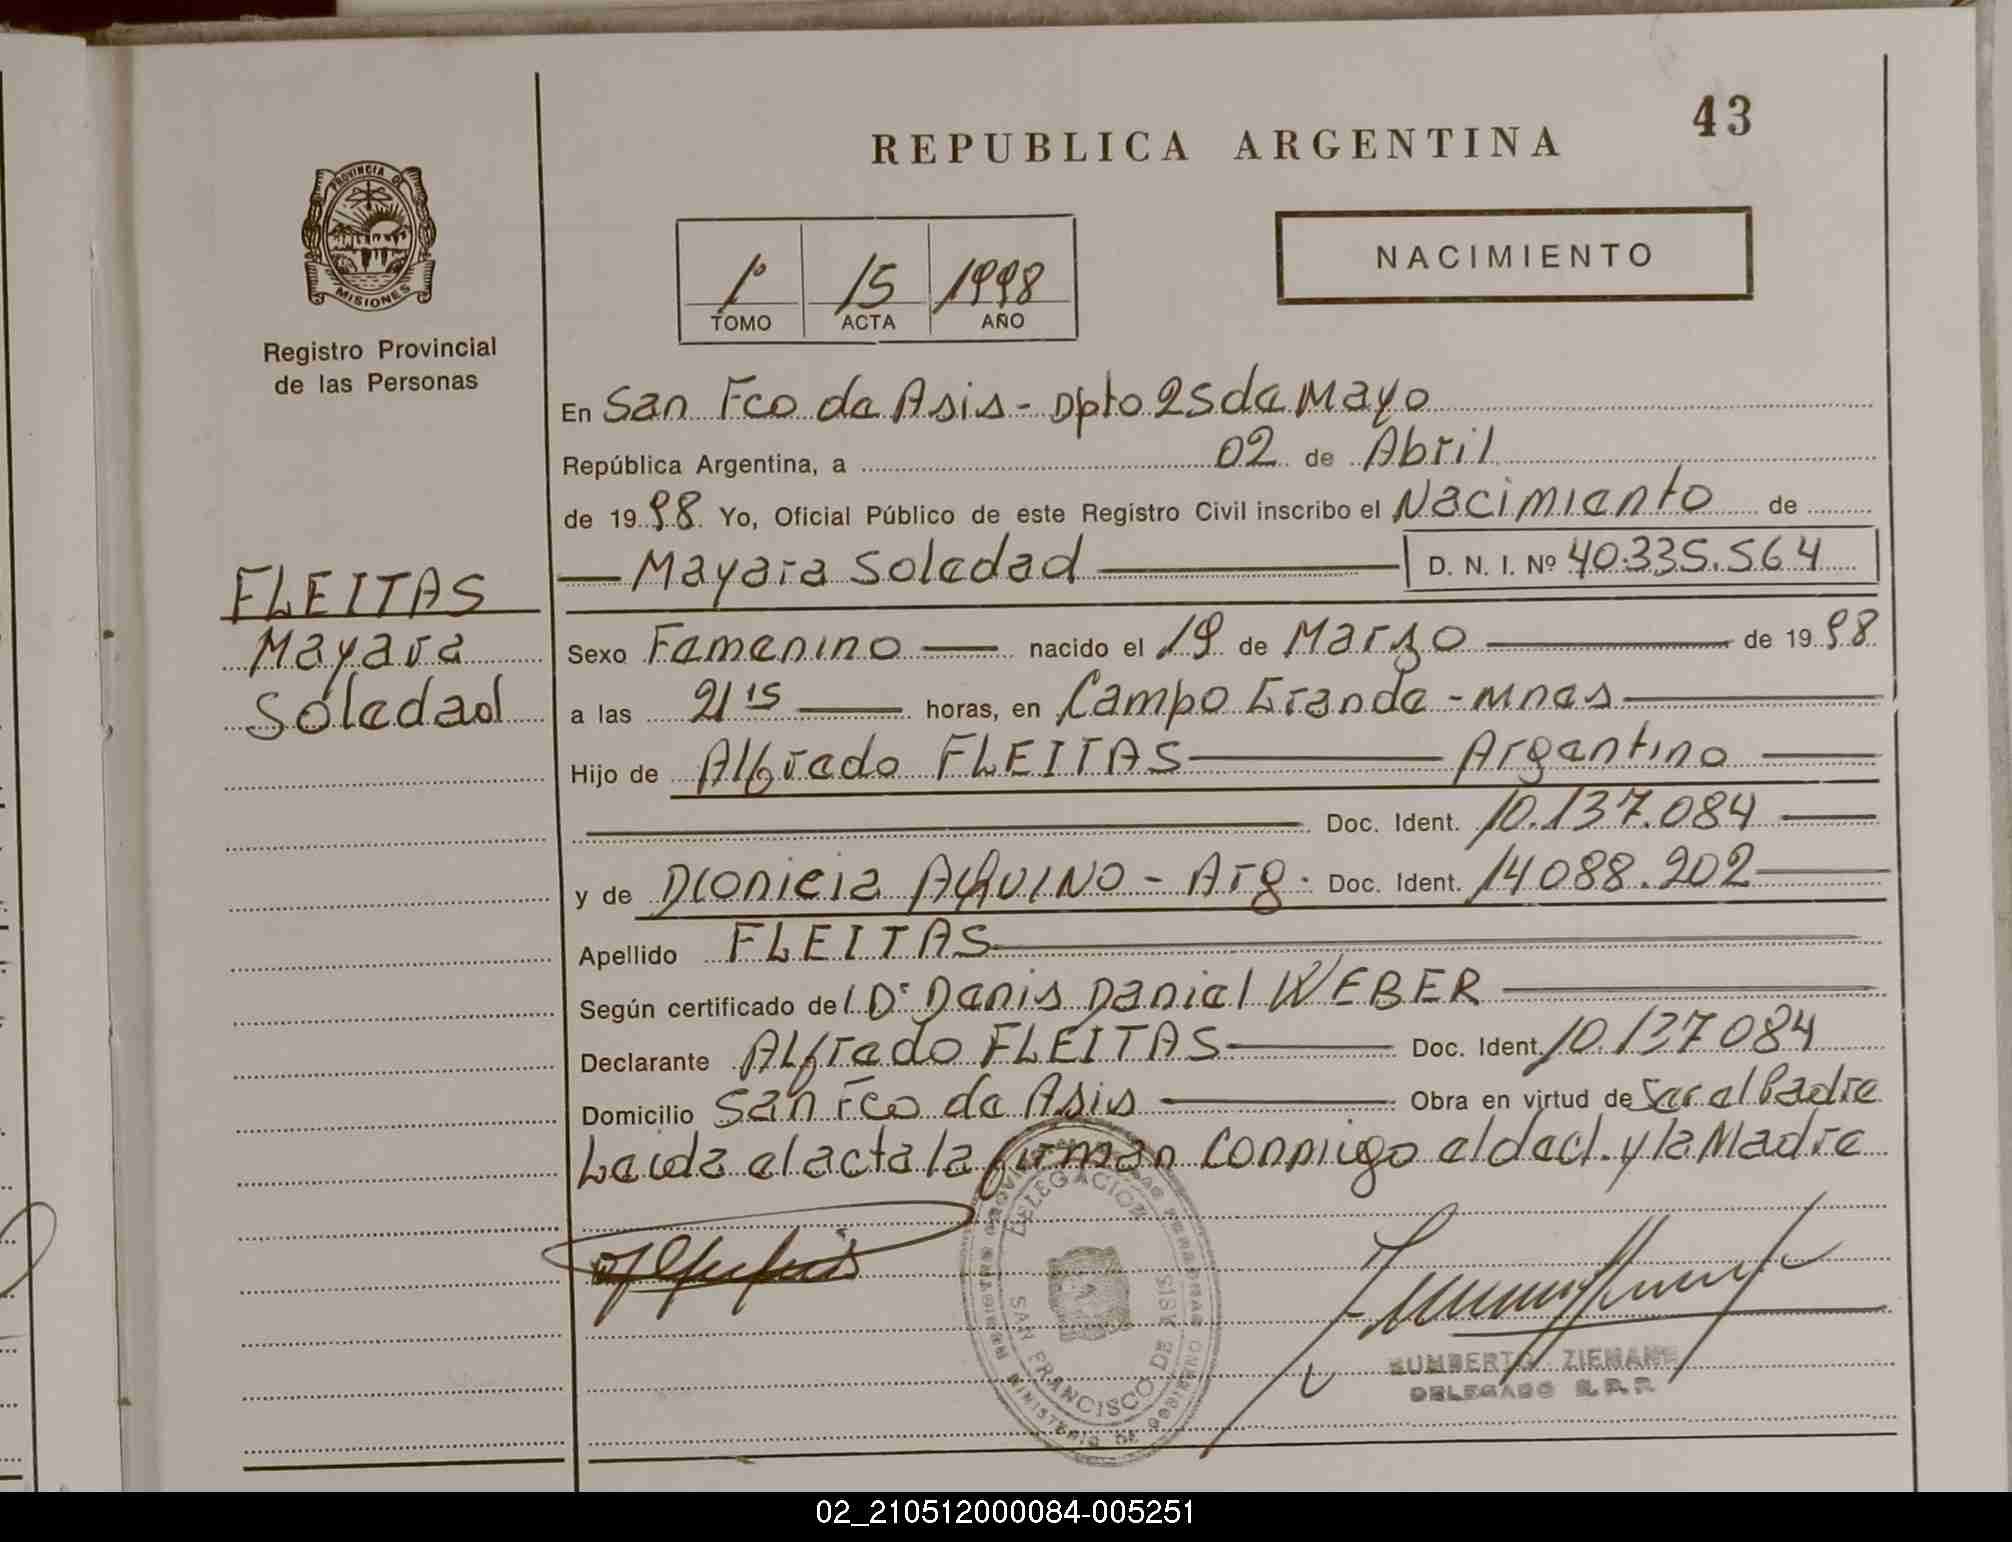 43
REPUBLICA ARGENTINA
PROVINCIA DE
MISIONES
Registro Provincial
de las Personas
1º 15 1998
TOMO ACTA AÑO
NACIMIENTO
En San Fco de Asis - Dpto 25 de Mayo
República Argentina, a 02 de Abril
de 1998 Yo, Oficial Público de este Registro Civil inscribo el Nacimiento de
Mayara Soledad D. N. I. Nº 40.335.564
FLEITAS
Mayara
Soledad
Sexo Femenino nacido el 19 de Marzo de 1998
a las 21 15 horas, en Campo Grande - Mnes
Hijo de Alfredo FLEITAS Argentino
Doc. Ident. 10.137.084
y de Dionicia AQUINO - Arg. Doc. Ident. 14088.202
Apellido FLEITAS
Según certificado del Dr Denis Daniel WEBER
Declarante Alfredo FLEITAS Doc. Ident. 10.137084
Domicilio San Fco de Asis Obra en virtud de Ser el Padre
Leida el acta la firman conmigo el decl. y la Madre
DELEGACION
SAN FRANCISCO DE ASIS
MINISTERIO DE GOBIERNO
HUMBERTO ZIEMANN
DELEGADO R.P.P.
02_210512000084-005251